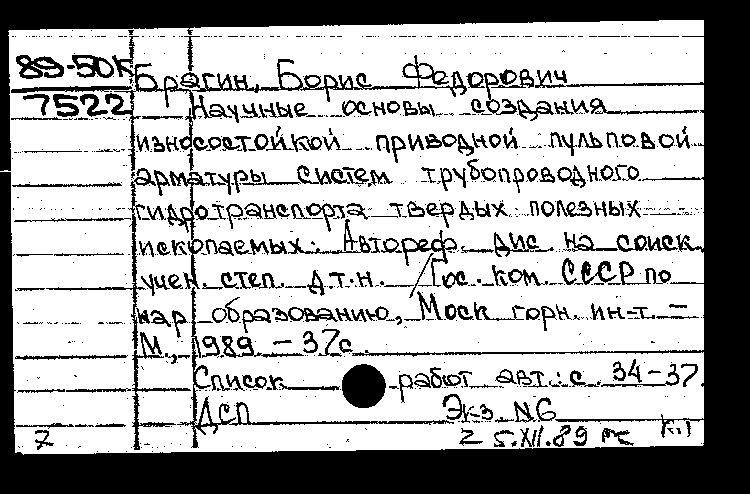 89-50К
7522
Брагин, Борис Федорович
Научные основы создания
износостойкой приводной пульповой
арматуры систем трубопроводного
гидротранспорта твердых полезных
ископаемых: Автореф. дис. на соиск.
учен. степ. д.т.н. / Гос. ком. СССР по
нар образованию, Моск горн. ин-т. –
М., 1989. – 37с.
Список работ авт.: с. 34-37.
ДСП Экз. N6
z 5.XII.89 К.1